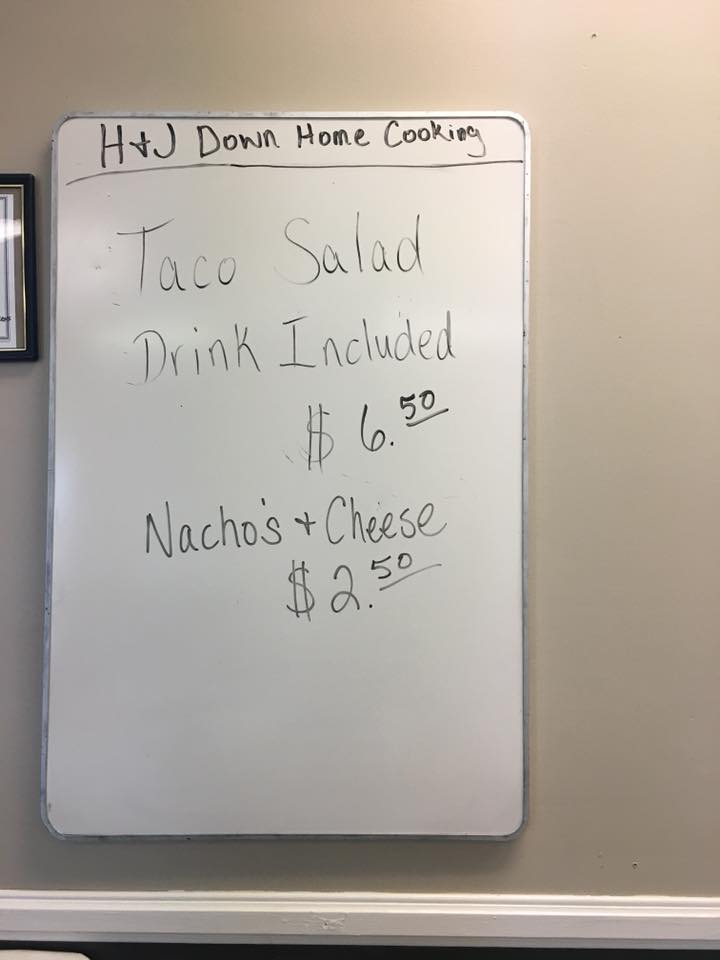 H+J Down Home Cooking
Taco Salad
Drink Included
$ 6.50
Nacho's + Cheese
$ 2.50